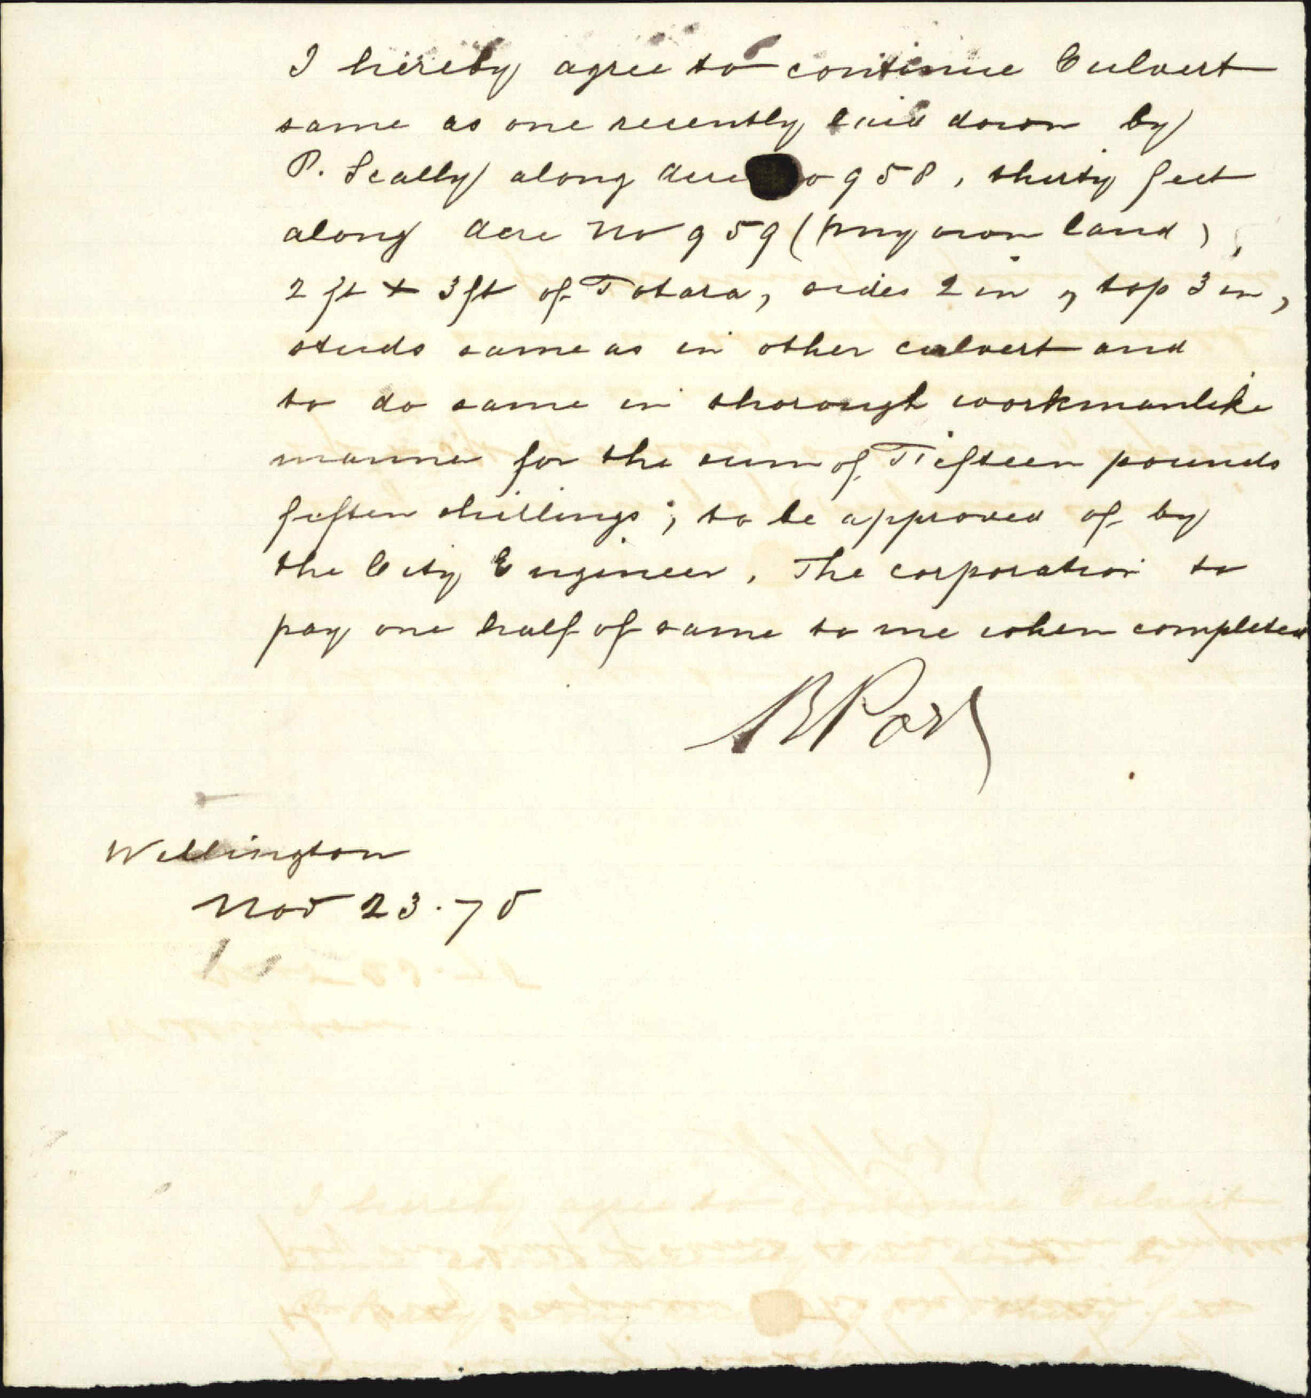 I hereby agree to continue Culvert
same as one recently laid down by
P. Scally along acre No 958, thirty feet
along acre No 959 (my own land),
2 ft + 3 ft of Totara, sides 2 in, top 3 in,
studs same as in other culvert and
to do same in thorough workmanlike
manner for the sum of Fifteen pounds
fiften shillings; to be approved of by
the City Engineer. The corporation to
pay one half of same to me when completed
Wellington
Nov 23. 75